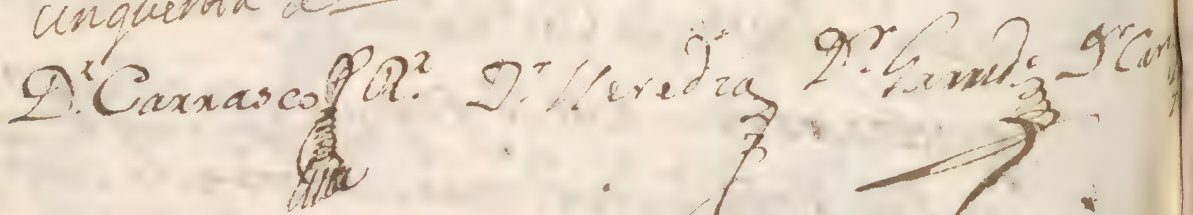 D.r Carrasco R.r D.r Heredia D.r Garrido D.r Car